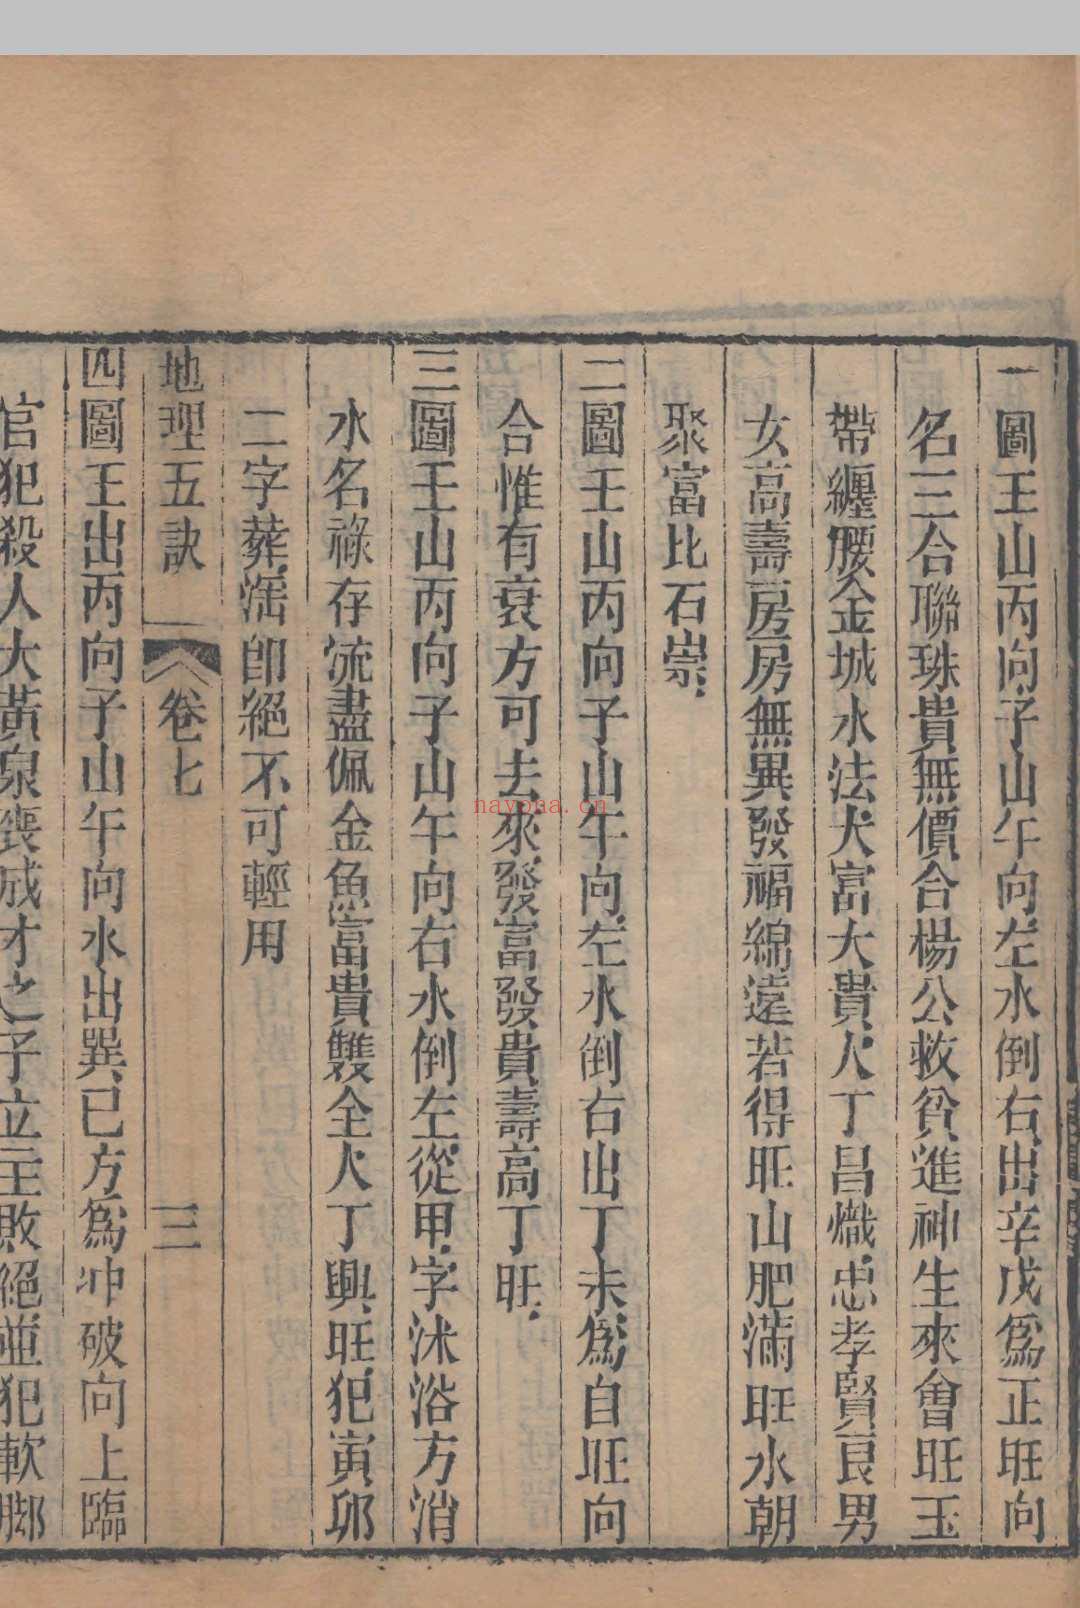 一圖壬山丙向子山午向左水倒右出辛戌爲正旺向
名三合聯珠貴無價合楊公救貧進神生來會旺玉
帶纏腰金城水法大富大貴人丁昌熾忠孝賢良男
女高壽房房無異發福綿遠若得旺山肥滿旺水朝
聚富比石崇
二圖壬山丙向子山午向左水倒右出丁未爲自旺向
合惟有衰方可去來發富發貴壽高丁旺
三圖壬山丙向子山午向右水倒左從甲字沐浴方消
水名祿存流盡佩金魚富貴雙全人丁興旺犯寅卯
二字葬淫卽絕不可輕用
地理五訣 卷七 三
四圖壬出丙向子山午向水出巽巳方爲冲破向上臨
官犯殺人大黃泉喪成才之子立主敗絕並犯軟脚
nayona.cn